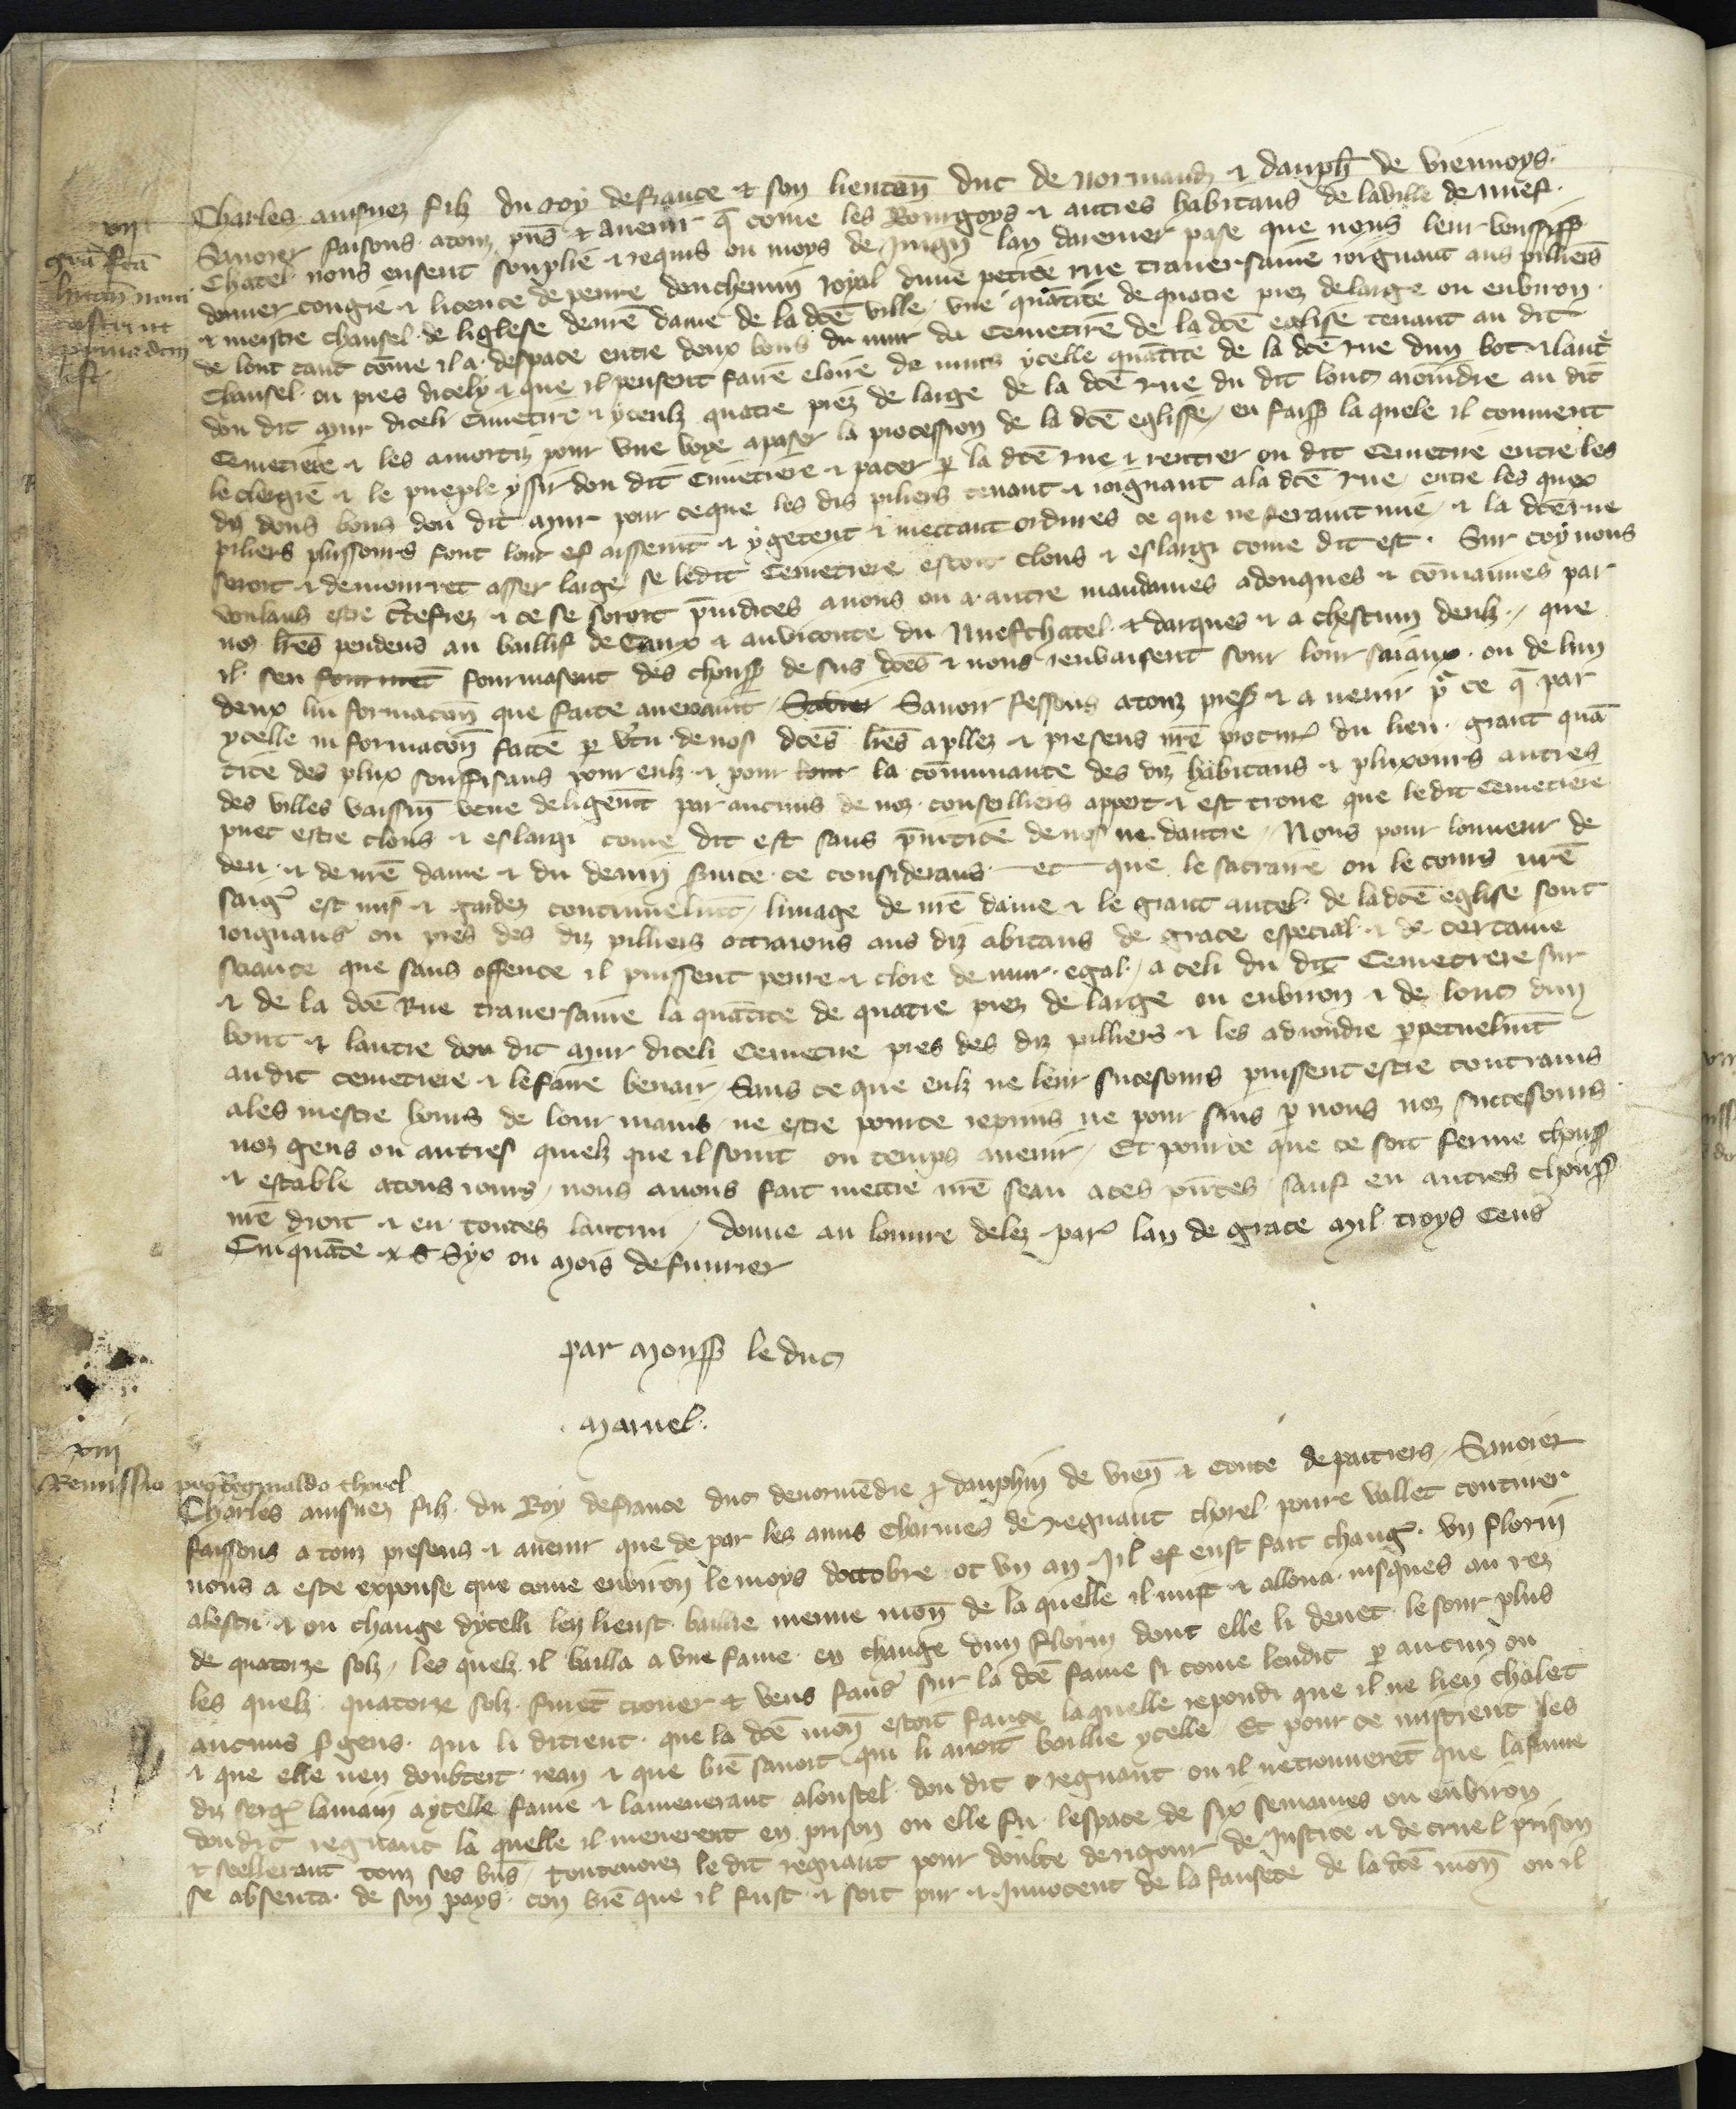 xii
Charles ainsnez filz du roy de france et son lieuten̄ duc de normandz ⁊ dauph̄ de viennoys.
Savoier faisons atouz pn̄s et avenir q̄ come les Bourgoys ⁊ autres habitans de la ville de nuef.
Chatel nous eusent souplie ⁊ requis ou moys de Juign lan darenier pase que nous leur vousissīss
donner congie ⁊ licence de penre don chemin royal dune petite rue traversaine ioignant aus pilliers
⁊ meistre chansel de liglese de nr̄e dame de la dc̄e ville vne quātite de quatre piez de large ou environ
de lonc tant cōme il a despace entre deux bous du mur du Cemetire de la dc̄e eglise tenant au dit
Chansel ou pres dicely ⁊ que il peusent faire clore de murs ycelle quātite de la dc̄e rue dun bot ⁊ lautre
don dit mur diceli cimetire ⁊ yceulz quatre piez de large de la dc̄e rue du dit lonc aioindre au dit
Cemetiere ⁊ les amortiz pour vne voye a paser la procession de la dc̄e eglisse en faiss la quele il convient
le clergie ⁊ le pueple yssir don dit Cimetiere ⁊ pacer p la dc̄e rue ⁊ rentrer ou dit Cemetire entre les
diz dous bous don dit mur pour ce que les dis piliers tenant ⁊ ioignant a la dc̄e rue entre les quex
piliers plussours font lour es aissemt̄ ⁊ y getent ⁊ mectant ordures ce que ne feraint mie ⁊ la dc̄e rue
seroit ⁊ demourret asser large se ledit Cemetiere estoit clous ⁊ eslargi come dit est. Sur coy nous
voulans estre c̄tefiez ⁊ ce se seroit p̄iudices a nous ou a autre mandames adonques ⁊ cōmaimes par
nos lr̄es pendens au baillif de Caux ⁊ au viconte du Nuefchatel et darques ⁊ a chescun deulz que
il sen fourmasent des chouss de sus dc̄es ⁊ nous renvaisent sour lour saiaux ou de lun
deux linformacon̄ que faite averaint Savoir fessons atouz pres ⁊ a venir pr ce q̄ par
ycelle informacon̄ faite p v̄tu de nos dc̄es lr̄es apllez ⁊ presens nr̄e procur̄ du lieu grant quā
tite des plux souffisans pour eulz ⁊ pour la cōmunante des diz habitans ⁊ pluxours autres
des villes vaissin̄ veue deligent̄ par aucuns de noz conseilliers appert ⁊ est trove que ledit Cemetiere
puet estre clous ⁊ eslargi come dit est sans p̄iudice de nos ne dautre Nous pour lonneur de
deu ⁊ de nr̄e dame ⁊ du devin s̄uice ce considerans et que le sacraire ou le cours nr̄e
saigr̄ est mis ⁊ gardez continuelmt̄ limage de nr̄e dame ⁊ le grant autel de la dc̄e eglise sont
ioignans ou pres des diz pilliers ottraions aus diz abitans de grace especial ⁊ de certaine
sciance que sans offence il puissent penre ⁊ clore de mur egal a celi du dit Cemetiere sur
⁊ de la dc̄e Rue traversaine la quātite de quatre piez de large ou environ ⁊ de lonc dun
bout ⁊ lautre don dit mur diceli Cemetire pres des diz pilliers ⁊ les adiondre p̄petuelmt̄
audit cemetiere ⁊ le faire benair Sans ce que eulz ne leur sucesours puissent estre contrains
ales mestre hours de lour mains ne estre pour ce repruis ne pour suis p nous noz successours
noz gens ou autres quielz que il soint ou temps avenir Et pour ce que ce soit ferme chouss
⁊ estable a tous iours nous avons fait mettre nr̄e seau a ces pn̄tes sauf en autres chouss
nr̄e droit ⁊ en toutes lautrui donne au louvre delez par̄ lan de grace mil troys Cens
Cinquāte et Syx ou mois de fuvrier
par monss le duc
marvel.
xiii
Remissio pro Reginaldo chorel
Charles ainsnez filz du Roy de france duc de normēdie ⁊ dauphin de vien̄ ⁊ conte de paitiers Savoier
faissons a touz presens ⁊ avenir que de par les amis Charnes de regnaut chorel povre vallet coutuier
nous a este expouse que come environ le moys doctobre ot vn an Jil ef eust fait changr̄ vn florin
alescu ⁊ ou change dycelli len li eust baillie menue mon̄ de la quelle il mist ⁊ alloua iusques au rez
de quatorze solz les quelz il bailla a vne fame en change dun florin dont elle li devet le sour plus
les quelz quatorze solz furēt trover et veus faus sur la dc̄e fame si come lendit p aucun ou
aucuns sgens qui li dirent que la dc̄e mon̄ estoit fause laquelle repondi que il ne lien chalet
⁊ que elle nen doubtoit rean ⁊ que biē savoit qui li avoit baillie ycelle Et pour ce mistrent les
diz sergr̄ la main a ycelle fame ⁊ lamenerant a loustel don dit regnaut ou il ne trouveret que la fame
don dit regnaut la quelle il menerent en prison ou elle fu lespace de six semaines ou environ
⁊ seellerant touz ses biēs Toutevoiez le dit regnaut pour doubte de rigour de Justice ⁊ de cruel prison
se absenta de son pays con biē que il fust ⁊ soit pur ⁊ Innocent de la fausete de la dc̄e mon̄ ou il